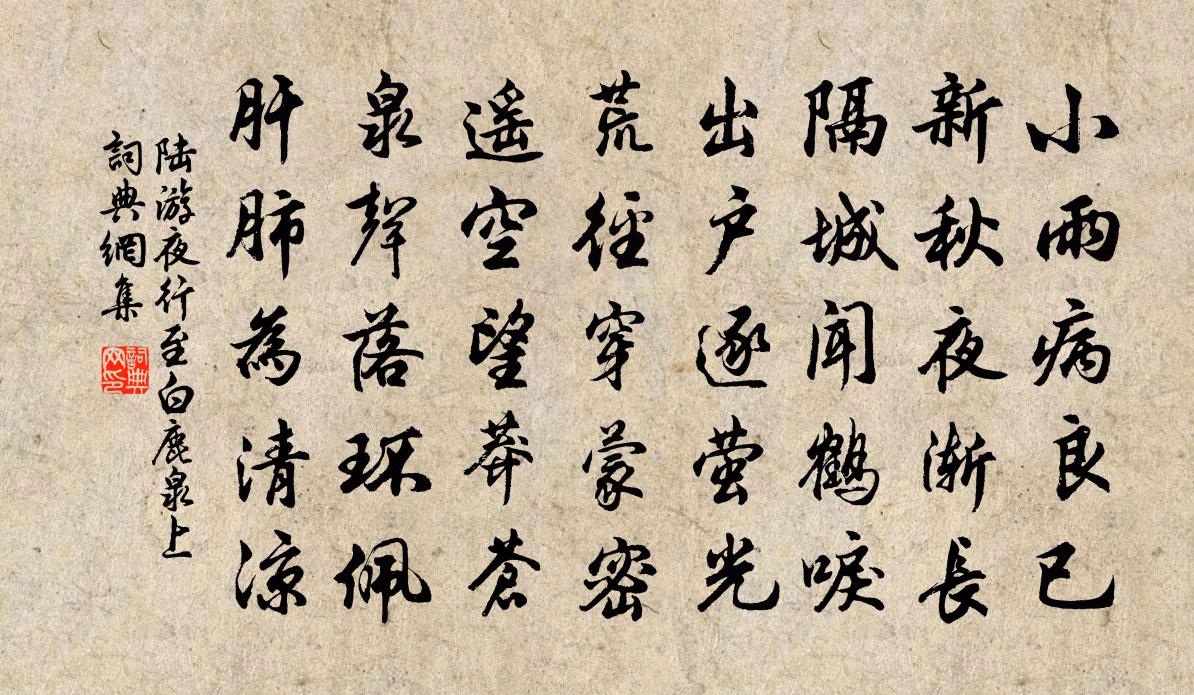 小雨病良已
新秋夜漸長
隔城聞鶴唳
出户逐萤光
荒徑穿蒙密
遥空望莽蒼
泉聲落環佩
肝肺為清涼
陆游夜行至白鹿泉上
詞典網集
詞典
网印